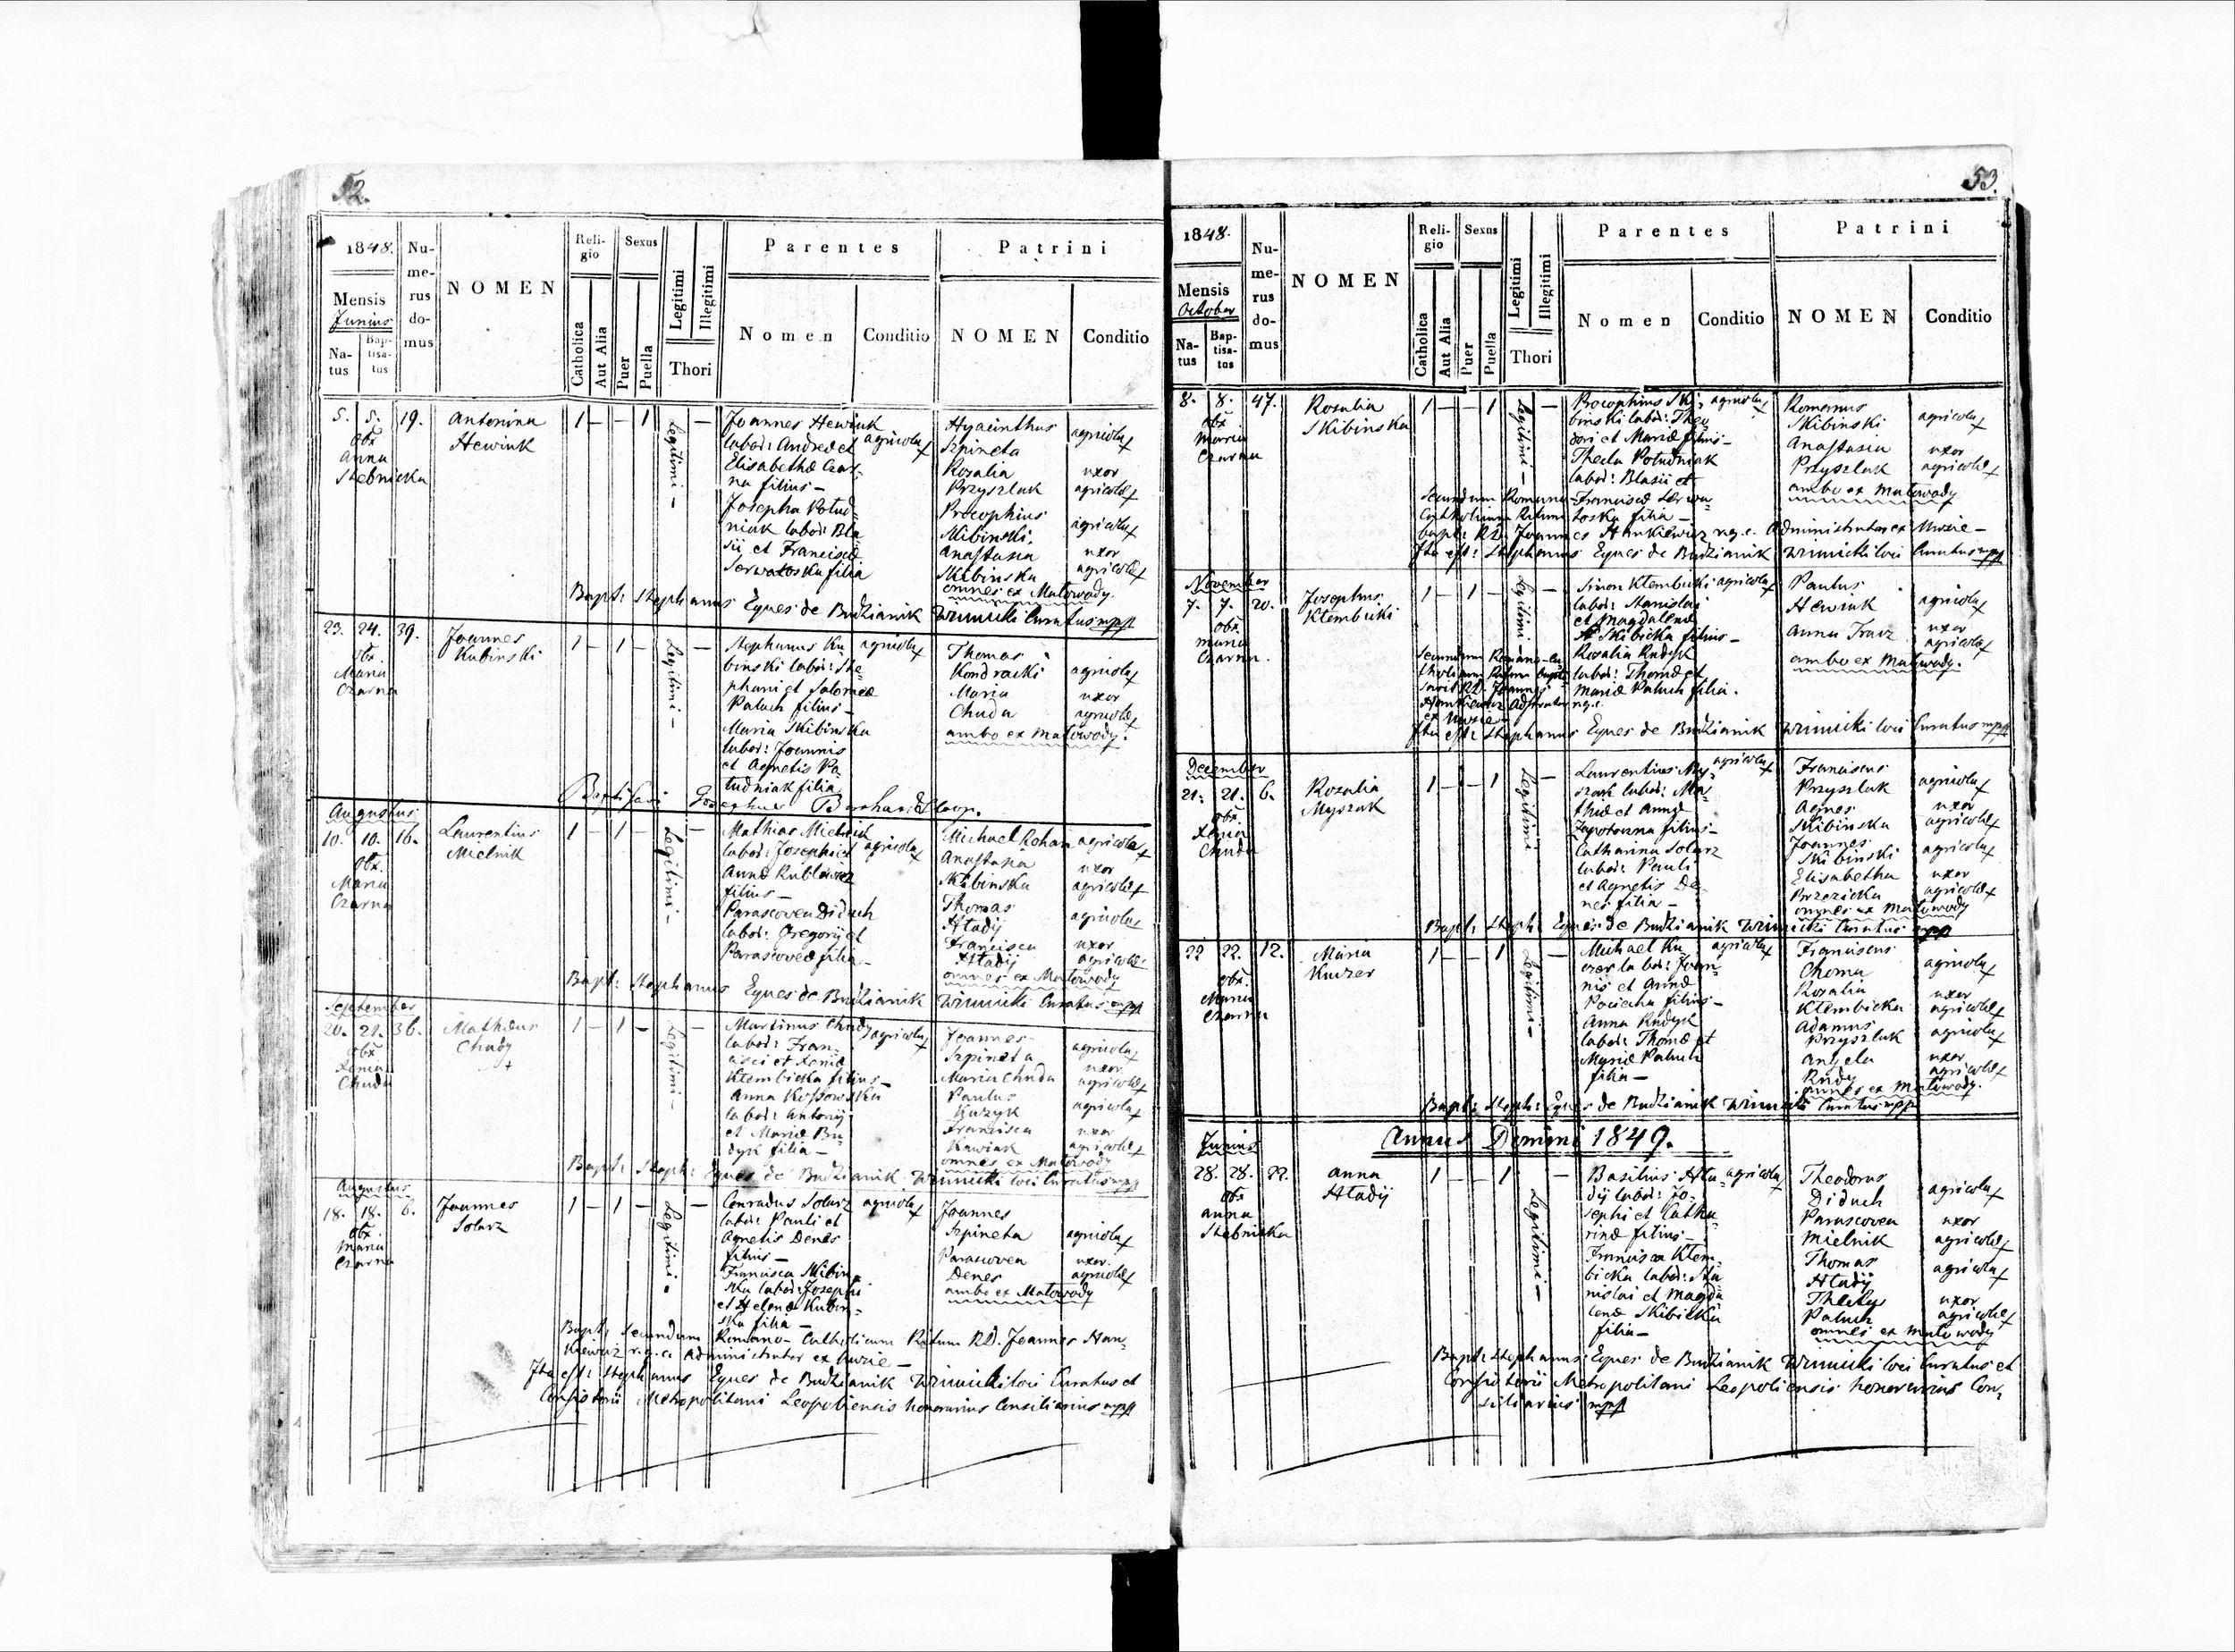 52.
1848.
Mensis
Junius
Na-
tus
Bap-
tisa-
tus
Nu-
me-
rus
do-
mus
NOMEN
Reli-
gio
Catholica
Aut Alia
Sexus
Puer
Puella
Legitimi
Illegitimi
Thori
Parentes
Nomen
Conditio
Patrini
NOMEN
Conditio
5. 5. 19.
obx
Anna
Stebnicka
Antonina
Hewiuk
1 — — 1 Legitimi —
Joannes Hewiuk
labor: Andreæ et
Elisabethæ Czar-
na filius —
Josepha Połud-
niak labor: Bla
sii et Franciscæ
Serwatoska filia
agricola
Hyacinthus
Szpineta
Rozalia
Przyszlak
Procophius
Skibinski
Anastasia
Skibinska
omnes ex Małowody.
agricola
uxor
agricolæ
agricola
uxor
agricolæ
Bapt: Stephanus Eques de Budzianik Winnicki Curatus mpp
23. 24. 39.
obx.
Maria
Czarna
Joannes
Kubinski
1 — 1 — Legitimi —
Stephanus Ku
binski labor: Ste-
phani et Salomeæ
Paluch filius —
Maria Skibinska
labor: Joannis
et Agnetis Po-
łudniak filia
agricola
Thomas
Kondracki
Maria
Chuda
ambo ex Małowody.
agricola
uxor
agricolæ
Augustus
10. 10. 16.
obx.
Maria
Czarna
Laurentius
Mielnik
1 — 1 — Legitimi —
Mathias Mielnik
labor: Josephi et
Annæ
filius —
Parascovea Diduch
labor: Gregorii et
Parascoveæ filia —
agricola
Michael Kohan
Anastasia
Skibinska
Thomas
Hładij
Francisca
Hładij
omnes ex Małowody
agricola
uxor
agricolæ
agricola
uxor
agricolæ
Bapt: Stephanus Eques de Budzianik Winnicki Curatus mpp
September
20. 21. 36.
obx
Xenia
Chuda
Mathæus
Chudy
1 — 1 — Legitimi —
Martinus Chudy
labor: Fran-
cisci et Xeniæ
Kłembicka filius —
Anna Kossowska
labor: Antonij
et Mariæ Ru-
dyk filia —
agricola
Joannes
Szpineta
Maria Chuda
Paulus
Kuzyk
Francisca
Kawiak
omnes ex Małowody
agricola
uxor
agricolæ
agricola
uxor
agricolæ
Bapt: Steph: Eques de Budzianik Winnicki loci Curatus mpp
Augustus
18. 18. 6.
obx.
Maria
Czarna
Joannes
Solarz
1 — 1 — Legitimi —
Conradus Solarz
labor: Pauli et
Agnetis Denes
filius —
Francisca Skibin-
ska labor: Josephi
et Helenæ Kubin-
ska filia —
agricola
Joannes
Szpineta
Parascovea
Denes
ambo ex Małowody
agricola
uxor
agricolæ
Bapt: Secundum Romano-Catholicum Ritum RD. Joannes Han-
kiewicz r.g.c. Administrator ex Uwsie —
Ita est: Stephanus Eques de Budzianik Winnicki loci Curatus et
Consistorii Metropolitani Leopoliensis honorarius Consiliarius mpp
53.
1848.
Mensis
October
Na-
tus
Bap-
tisa-
tus
Nu-
me-
rus
do-
mus
NOMEN
Reli-
gio
Catholica
Aut Alia
Sexus
Puer
Puella
Legitimi
Illegitimi
Thori
Parentes
Nomen
Conditio
Patrini
NOMEN
Conditio
8. 8. 47.
obx
Maria
Czarna
Rosalia
Skibinska
1 — — 1 Legitimi —
Procophius Ski-
binski labor: Theo
dori et Mariæ filius —
Thecla Południak
labor: Blasii et
Franciscæ Serwa-
toska filia —
agricola
Romanus
Skibinski
Anastasia
Przyszlak
ambo ex Małowody
agricola
uxor
agricolæ
Secundum Romano-
Catholicum Ritum
bapt: RD. Joannes Hankiewicz r.g.c. Administrator ex Uwsie —
Ita est: Stephanus Eques de Budzianik Winnicki loci Curatus mpp
November
7. 7. 20.
obx.
Maria
Czarna.
Josephus
Kłembicki
1 — 1 — Legitimi —
Simon Kłembicki
labor: Stanislai
et Magdalenæ
Skibicka filius —
Rozalia Rudyk
labor: Thomæ et
Mariæ Paluch filia.
agricola
Paulus
Hewiuk
Anna Tracz
ambo ex Małowody.
agricola
uxor
agricolæ
Secundum Romano-Ca-
tholicum Ritum bapti-
savit RD. Joannes
Hankiewicz Adstrator r.g.c.
ex Uwsie —
Ita est: Stephanus Eques de Budzianik Winnicki loci Curatus mpp
December
21. 21. 6.
obx.
Xenia
Chuda
Rozalia
Myszak
1 — — 1 Legitimi —
Laurentius My-
szak labor: Ma-
thiæ et Annæ
Zapotoczna filius —
Catharina Solarz
labor: Pauli
et Agnetis De-
nes filia —
agricola
Franciscus
Przyszlak
Agnes
Skibinska
Joannes
Skibinski
Elisabetha
Brzezicka
omnes ex Małowody
agricola
uxor
agricolæ
agricola
uxor
agricolæ
Bapt: Steph: Eques de Budzianik Winnicki Curatus mpp
22 22. 12.
obx.
Maria
Czarna
Maria
Kuczer
1 — — 1 Legitimi —
Michael Ku
czer labor: Joan-
nis et Annæ
Pociecha filius —
Anna Rudyk
labor: Thomæ et
Mariæ Paluch
filia —
agricola
Franciscus
Choma
Rozalia
Kłembicka
Adamus
Przyszlak
Angela
Rudy
omnes ex Małowody.
agricola
uxor
agricolæ
agricola
uxor
agricolæ
Bapt: Steph: Eques de Budzianik Winnicki Curatus mpp
Annus Domini 1849.
Junius
28. 28. 22.
obx
Anna
Stebnicka
Anna
Hładij
1 — — 1 Legitimi —
Basilius Hła-
dij labor: Jo-
sephi et Catha-
rinæ filius —
Francisca Kłem-
bicka labor: Sta
nislai et Magda
lenæ Skibicka
filia —
agricola
Theodorus
Diduch
Parascovea
Mielnik
Thomas
Hładij
Thecla
Paluch
omnes ex Małowody
agricola
uxor
agricolæ
agricola
uxor
agricolæ
Bapt: Stephanus Eques de Budzianik Winnicki loci Curatus et
Consistorii Metropolitani Leopoliensis honorarius Con-
siliarius mpp